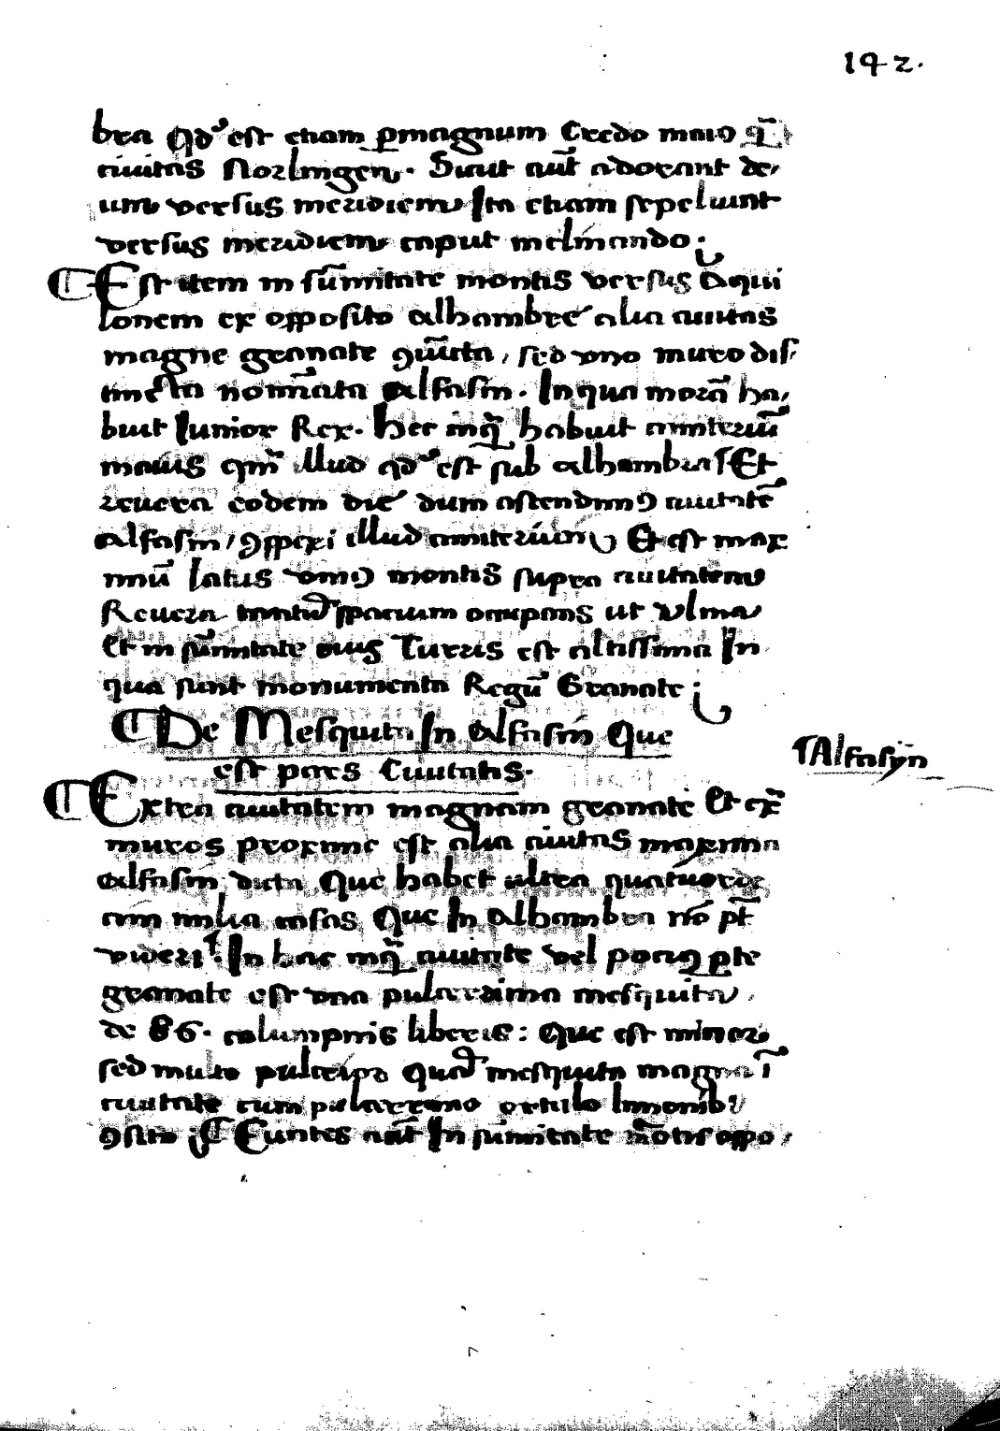 142.
bra qd' est etiam permagnum Credo maio qͫ
ciuitas Norlingen. Sicut aut̄ adorant de,
um versus meridiem Ita etiam sepeliunt
versus meridiem caput inclinando;
Est item in sum̄itate montis versus aqui
lonem ex opposito alhambre alia ciuitas
magne granate ꝯiūcta, sed vno muro dis,
tincta nom̄inata alfasin. In qua morā ha,
buit Iunior Rex. Hec inq̄ habuit cimiteriū
maius qm̄ illud qd' est sub alhambra Et
reuera eodem die dum ascendimꝯ ciuitatē
alfasin, ꝯspexi illud cimiteriū Et est maxi
mū latus vniꝯ montis supra ciuitatem
Reuera tantū spacium occupans ut vlma
Et in sum̄itate eius Turris est altissima In
qua sunt monumenta Regū Granate;
De Mesquita In Alfasin Que
est pars Ciuitatis.
¶Alfasÿn
Extra ciuitatem magnam granate Et ex̄
muros proxime est alia ciuitas maxima
alfasin dicta Que habet ultra quatuorde
cim milia casas Que In Alhambra nō pt̄
videri. In hac inq̄ ciuitate vel pociꝯ ꝑte
granate est vna pulcerima mesquita,
de 86. columpnis liberis: Que est minor
sed multo pulcrior Quā mesquita magna ī
ciuitate cum pulcerrimo ortulo limonibꝯ
ꝯsito; Euntes aut̄ In sum̄itate mōtis oppo,